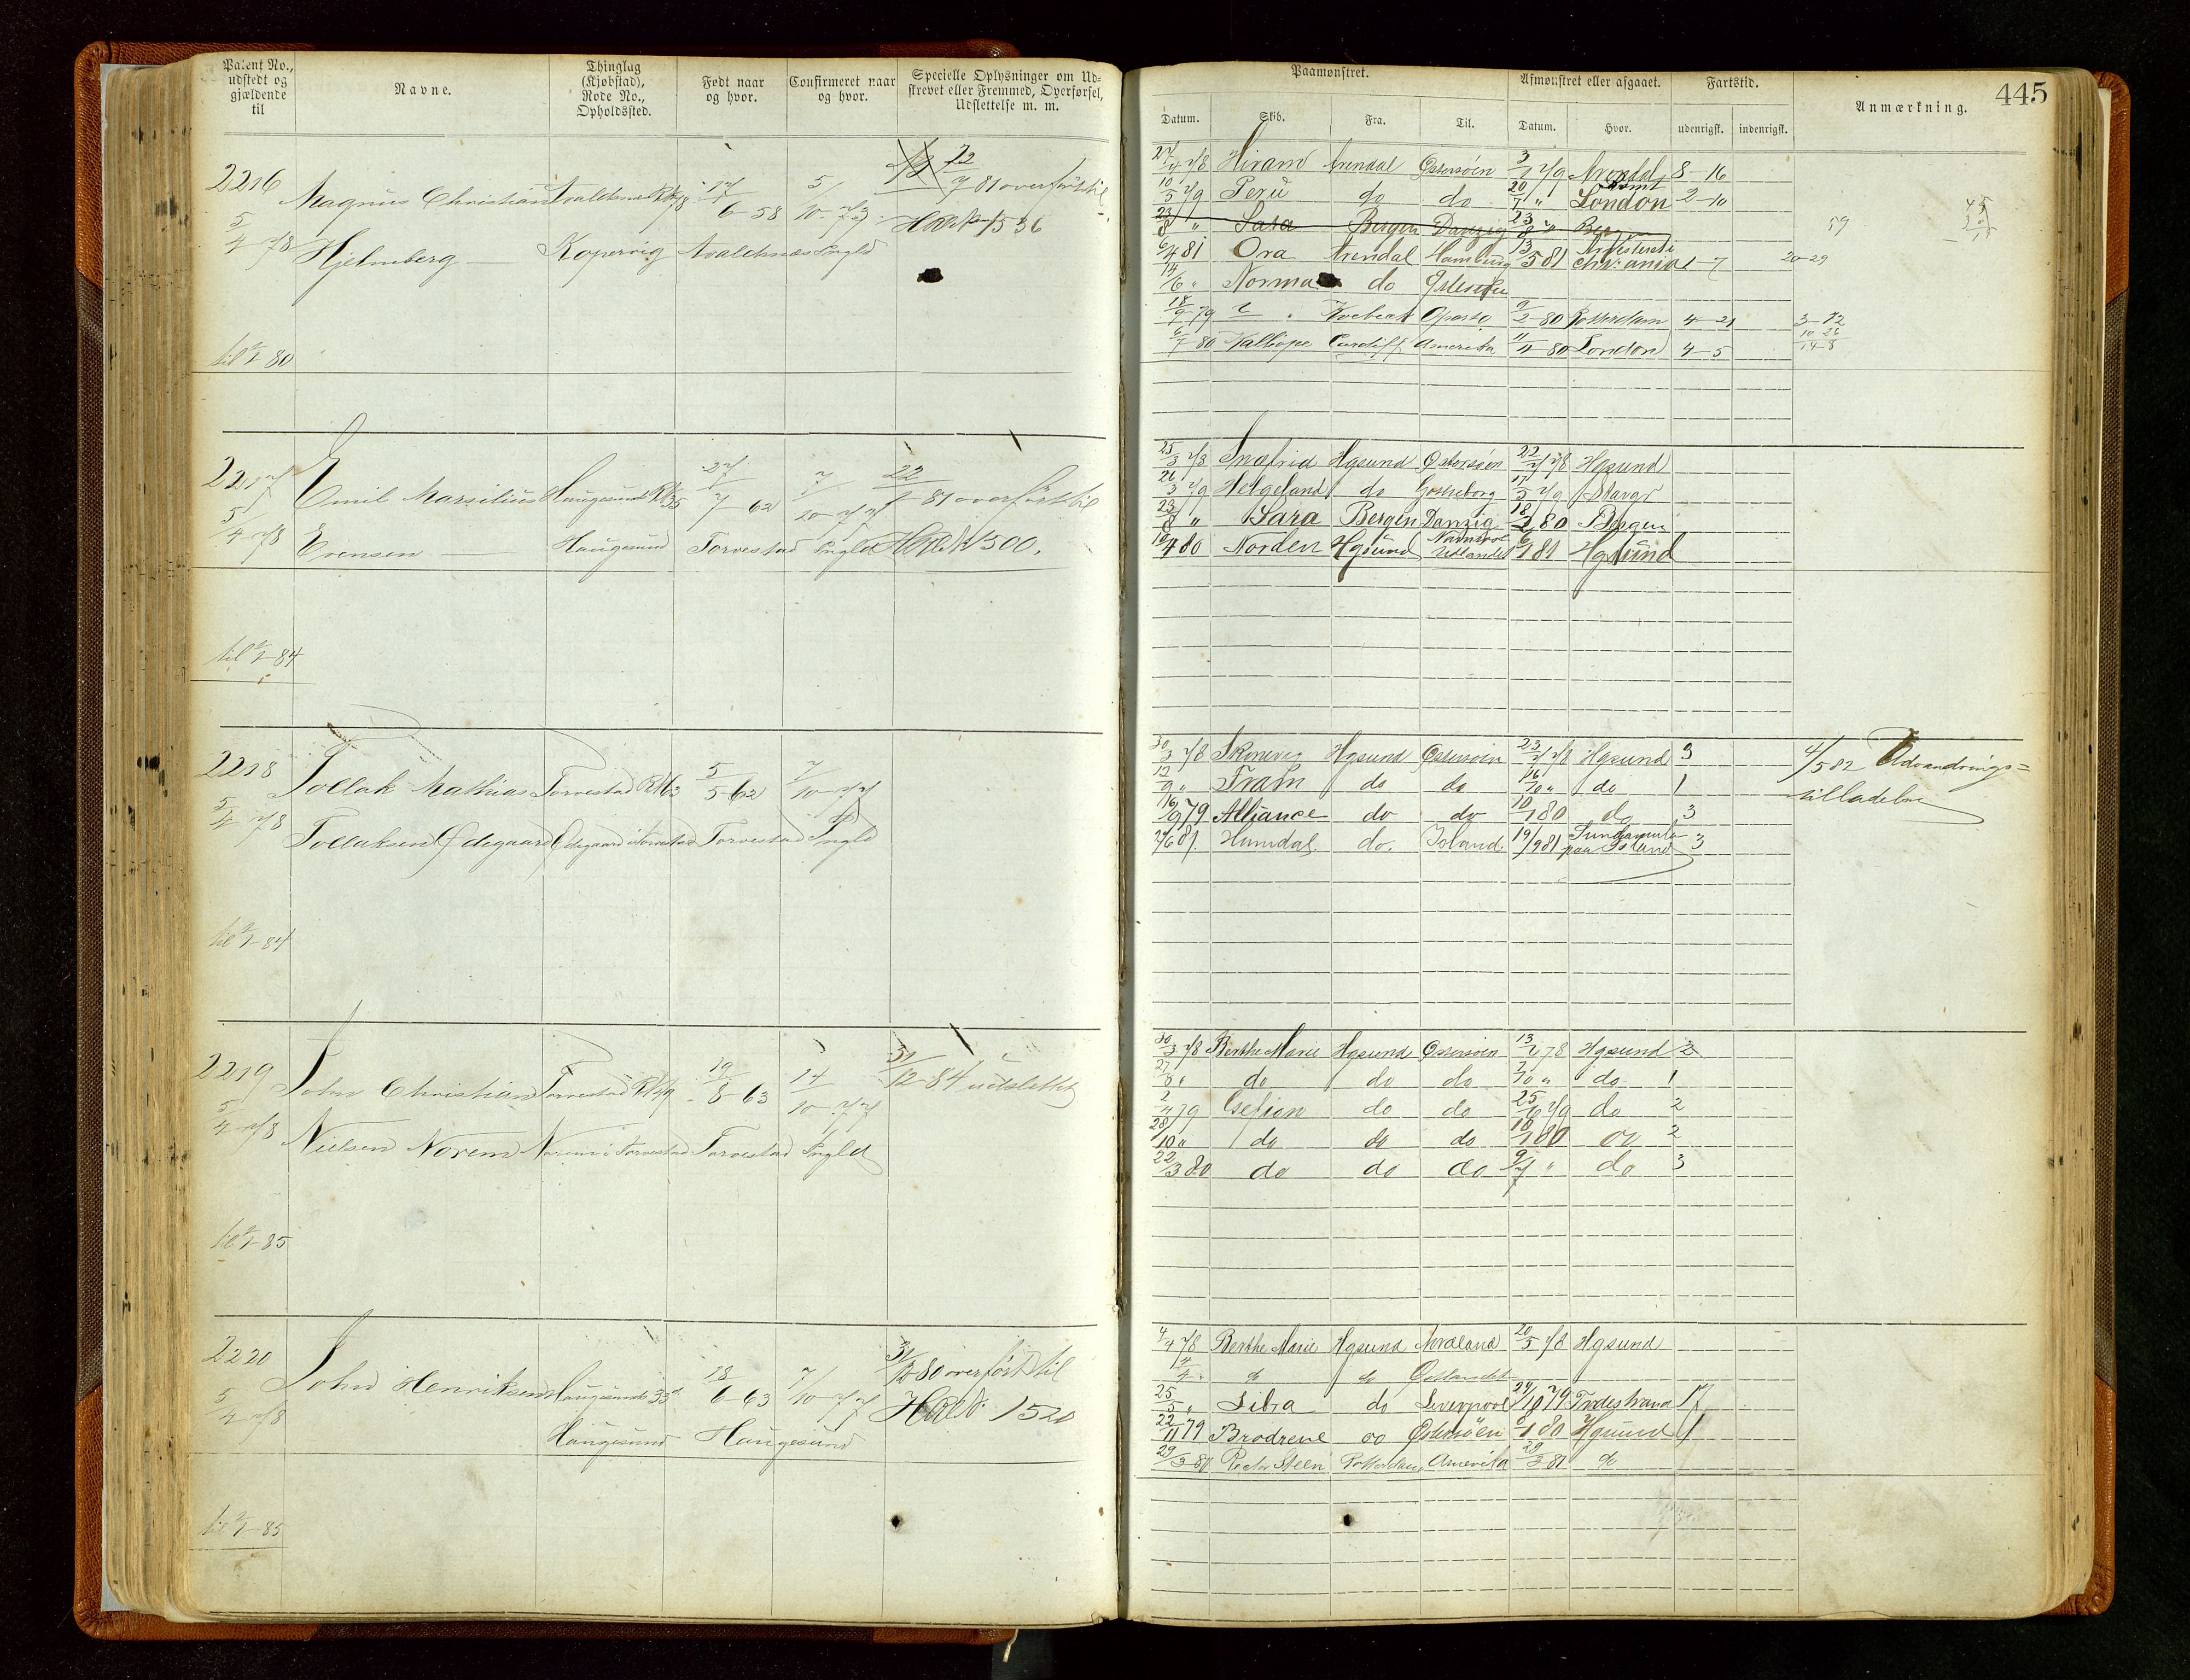 445
Patent No., udstedt og gjældende til
Navne.
Thinglag (Kjøbstad), Rode No., Opholdssted.
Født naar og hvor.
Confirmeret naar og hvor.
Specielle Oplysninger om Udskrevet eller Fremmed, Overførsel, Udslettelse m. m.
Paamønstret.
Datum. Skib. Fra. Til.
Afmønstret eller afgaaet.
Datum. Hvor.
Fartstid.
udenrigsk. indenrigsk.
Anmærkning.
2216
5/4 78
Magnus Christian
Hjelmberg
Kopervig
17/6-58
Avaldsnæs Prgld
5/10-73
22/7 81 overført til
1536
til 1/1 80
27/4 78 Hiram Arendal Østersøen 3/1 79 Arendal 8-16
10/5 79 Peru do do 20/7 " London 2-10
23/8 " Sara Bergen Danzig 23/8 "
6/4 81 Ora Arendal Hamburg 13/5 81 Chr:ania 1-7
20-29
59
14/6 " Norma do
18/9 79 Oporto 9/2-80 Rotterdam 4-21
3-12
6/7-80 Kalliope Cardiff Amerika 11/11-80 London 4-5
14-8
2217
5/4 78
Emil Marsilius
Evensen
Haugesund
Haugesund
27/7-62
Torvestad Prgld
7/10-77
22/1-81 overført til
1300.
til 1/1-84
25/3 78 Snefrid Hgsund Østersøen 22/7 78 Hgsund
26/3 79 Helgeland do Gotheborg 17/5 79 Stavgr
23/8 " Sara Bergen Danzig 18/2 80 Bergen
10/4 80 Norden Hgsund Udlandet 6/1 81 Hgsund
2218
5/4 78
Tollak Mathias
Tollaksen Ødegaard
Torvestad R 163
Ødegaard i Torvestad
5/5-62
Torvestad Prgld
7/10-77
til 1/1-84
30/3 78 Skonevig Hgsund Østersøen 23/7 78 Hgsund 3
12/9 " Trafn do do 16/10 " do 1
16/9 79 Alliance do do 10/1 80 do 3
24/6 81 Humdal do. Island. 19/9 81 paa Island 3
4/5 82 Udvandrings=
tilladelse
2219
5/4 78
John Christian
Nielsen Norem
Norem i Torvestad
19/8-63
Torvestad Prgld
14/10-77
31/12-84 udslettet
til 1/1-85
30/3 78 Berthe Marie Hgsund Østersøen 13/7 78 Hgsund 2
27/8 " do do do 7/10 " do 1
2/4 79 Gefion do do 25/6 79 do 2
28/10 " do do do 10/1 80 do 2
22/3 80 do do do 9/7 " do 3
2220
5/4 78
John Henriksen
Haugesund 33
Haugesund
18/6-63
Haugesund
7/10-77
31/12 80 overført til
1520
til 1/1-85
4/4 78 Berthe Marie Hgsund Nordland 20/5 78 Hgsund
4/4 " do do Østlandet
25/5 " Libra do Leverpool 24/10 79 Tvedestrand 17
22/11 79 Brødrene do Østersøen 8/1 80 Hgsund 1
29/3-80 Rector Steen Rotterdam Amerika 29/3 81 do